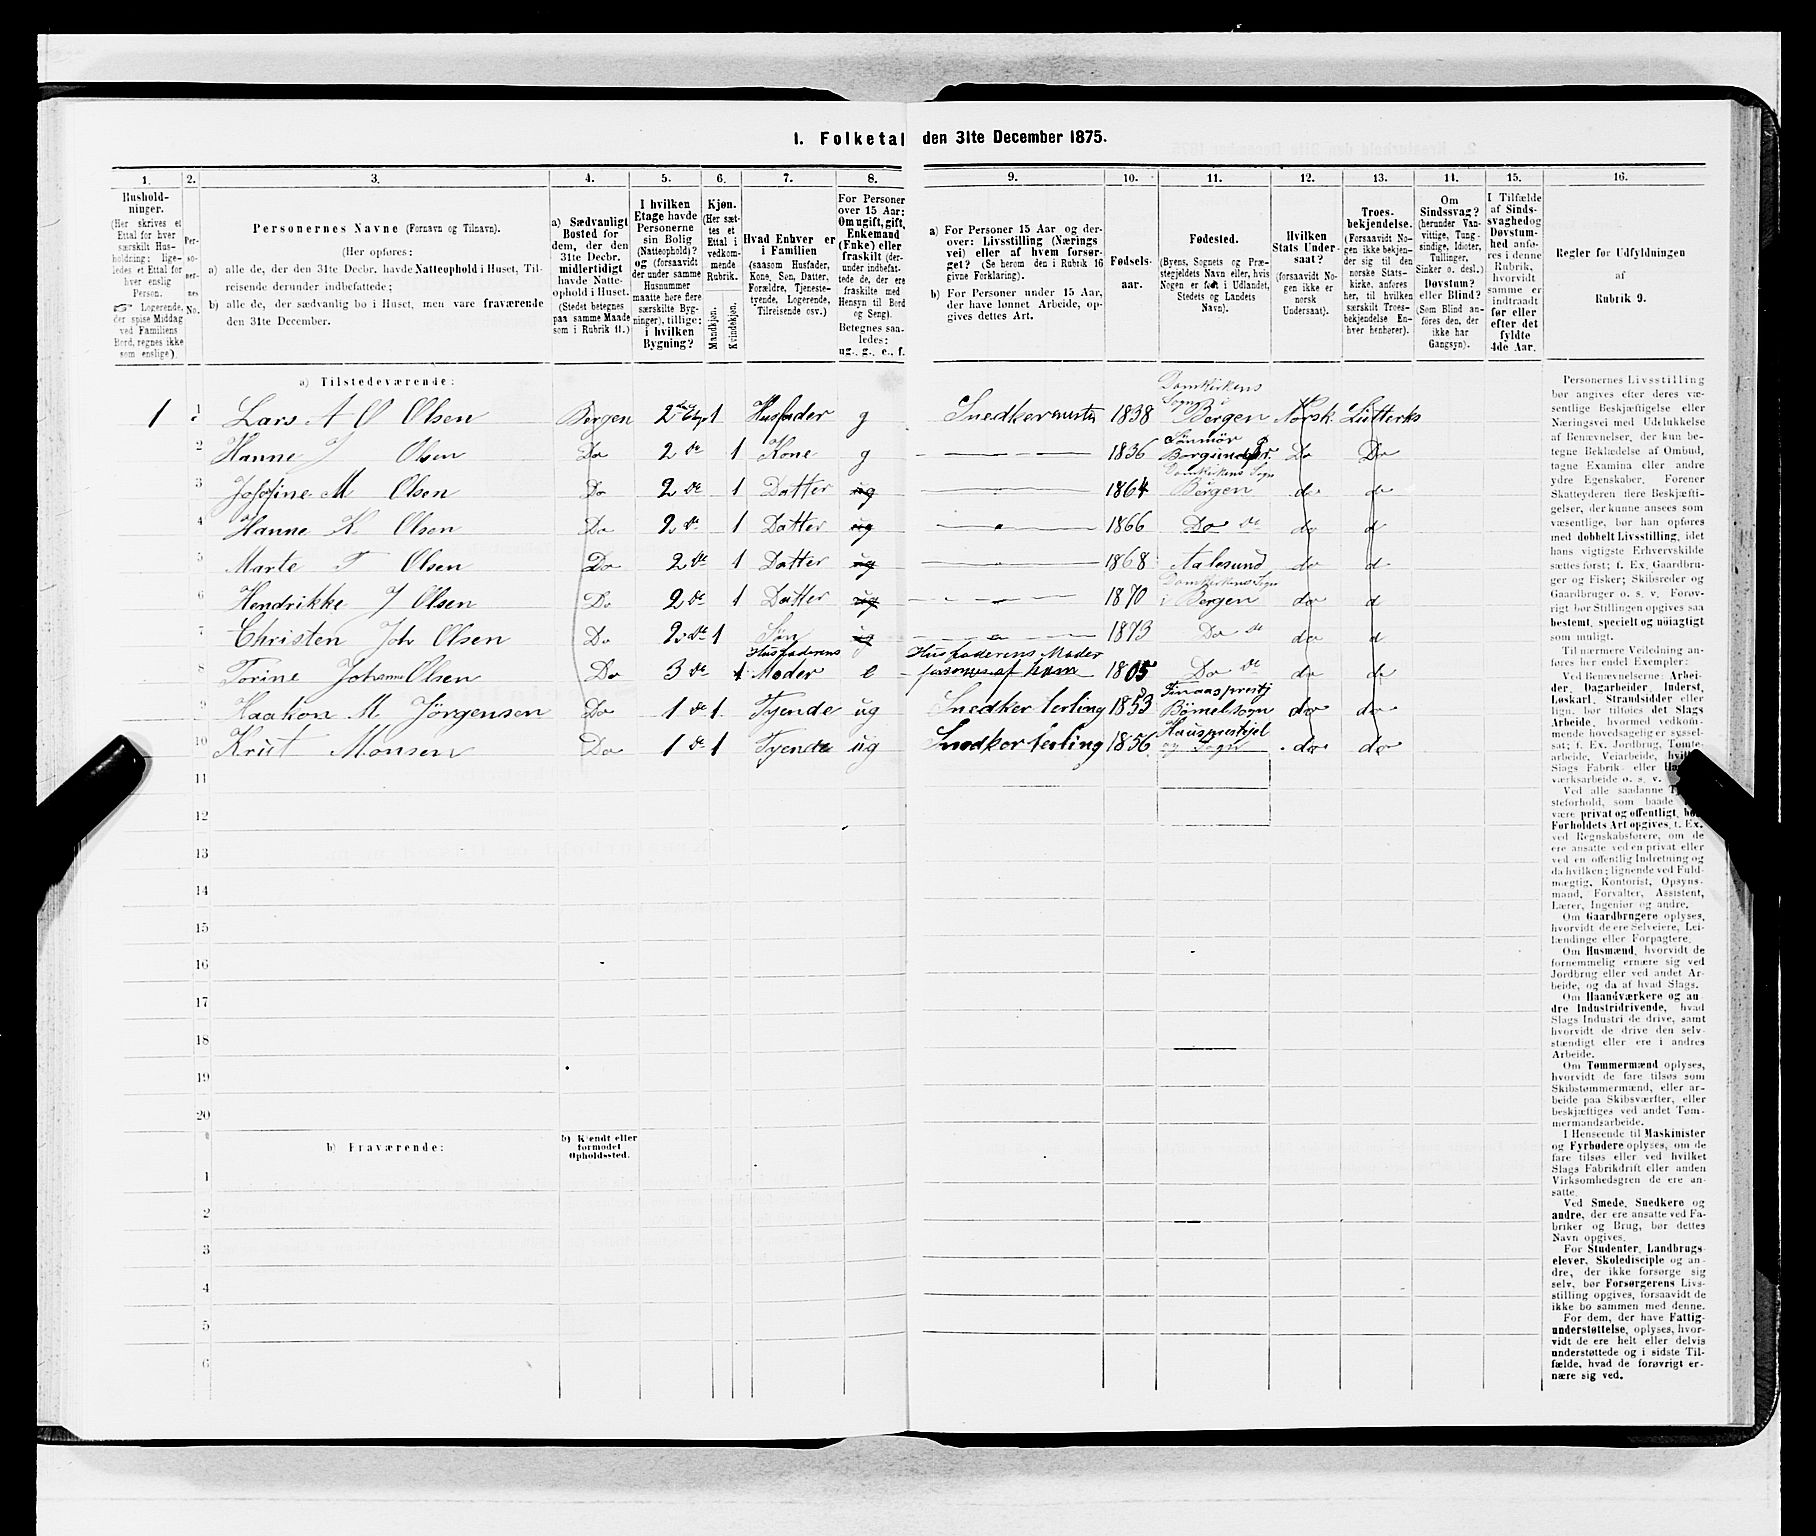 1. Folketal den 31te December 1875.
1. 2. 3. 4. 5. 6. 7. 8. 9. 10. 11. 12. 13. 14. 15. 16.
Husholdninger.
(Her skrives et
Ettal for hver
særskilt Husholdning;
ligeledes et Ettal for
hver enslig
Person.
Logerende,
der spise Middag
ved Familiens
Bord, regnes ikke
som enslige).
Personernes No.
Personernes Navne (Fornavn og Tilnavn).
(Her opføres:
a) alle de, der den 31te Decbr. havde Natteophold i Huset, Tilreisende
derunder indbefattede;
b) alle de, der sædvanlig bo i Huset, men vare fraværende
den 31te December.
a) Sædvanligt
Bosted for
dem, der den
31te Decbr.
midlertidigt
havde Natteophold
i Huset.
(Stedet betegnes
paa samme Maade
som i Rubrik 11.)
I hvilken
Etage havde
Personerne
sin Bolig
(Natteophold)?
og (forsaavidt
der under samme
Husnummer
maatte høre flere
særskilte Bygninger),
tillige:
i hvilken
Bygning?
Kjøn.
(Her sættes
et
Ettal i
vedkommende
Rubrik.
Mandkjøn.
Kvindekjøn.
Hvad Enhver er
i Familien
(saasom Husfader,
Kone, Søn, Datter,
Forældre, Tjenestetyende,
Logerende,
Tilreisende osv.)
For Personer
over 15 Aar:
Om ugift, gift,
Enkemand
(Enke) eller
fraskilt (derunder
indbefattede
de, der ere
fraskilte med
Hensyn til Bord
og Seng).
Betegnes saaledes:
ug., g., e., f.
a) For Personer 15 Aar og derover:
Livsstilling (Næringsvei)
eller af hvem forsørget?
(Se herom den i Rubrik 16
givne Forklaring).
b) For Personer under 15 Aar,
der have lønnet Arbeide, opgives
dettes Art.
Fødselsaar.
Fødested.
(Byens, Sognets og Præstegjeldets
Navn eller, hvis
Nogen er født i Udlandet,
Stedets og Landets
Navn).
Hvilken
Stats Undersaat?
(forsaavidt Nogen
ikke er
norsk
Undersaat).
Troesbekjendelse.
(Forsaavidt Nogen
ikke bekjender
sig til den
norske Statskirke,
anføres
her, til hvilken
særskilt Troesbekjendelse
Enhver
henhører).
Om
Sindssvag?
(herunder Vanvittige,
Tungsindige,
Idioter,
Tullinger,
Sinker o. desl.)
Døvstum?
eller Blind?
(Som Blind anføres
den, der
ikke har
Gangsyn).
I Tilfælde
af Sindssvaghed
og
Døvstumhed
anføres
i denne
Rubrik,
hvorvidt
samme er
indtraadt
før eller
efter det
fyldte
4de Aar.
Regler for Udfyldningen
af
Rubrik 9.
a) Tilstedeværende:
1 1 Lars A O Olsen Bergen 2 1 Husfader g Snedkermester 1838 Domkirkens Sogn i Bergen Norsk Lutterks
2 Hanne J Olsen Do 2 de 1 Kone g 1836 Sønmør Borgund Do Do
3 Josefine M Olsen Do 2 de 1 Datter ug 1864 Domkirkens Sogn Bergen do do
4 Hanne K Olsen Do 2 de 1 Datter ug 1866 Do de do d
5 Marte T Olsen Do 2 de 1 Datter ug 1868 Aalesund do d
6 Hendrikke J Olsen Do 2 de 1 Datter ug 1870 Domkirkens Sogn i Bergen do d
7 Christen Joh Olsen Do 2 de 1 Søn ug 1873 Do de do d
8 Torine Johanne Olsen Do 3 de 1 Husfaderens Moder e Husfaderens Moder forsørges af ham 1805 Do de do do
9 Haakon M Jörgensen Do 1 de 1 Tyende ug Snedker lerling 1853 Finaasprestj Bömel sogn do do
10 Knut Monsen Do 1 de 1 Tyende ug Snedkerlerling 1856 Hausprestjel og Sogn do do
11
12
13
14
15
16
17
18
19
20
b) Fraværende: b) Kjendt eller
formodet
Opholdssted.
1
2
3
4
5
6
Personernes Livsstilling
bør angives efter deres væsentlige
Beskjæftigelse eller
Næringsvei med Udelukkelse
af Benævnelser, der kun betegne
Beklædelse af Ombud,
tagne Examina eller andre
ydre Egenskaber. Forener
Skatteyderen flere Beskjæftigelser,
der kunne ansees som
væsentlige, bør han opføres
med dobbelt Livsstilling, idet
hans vigtigste Erhvervskilde
sættes først; f. Ex. Gaardbruger
og Fisker; Skibsreder og
Gaardbruger o. s. v. Forøvrigt
bør Stillingen opgives saa
bestemt, specielt og nøiagtigt
som muligt.
Til nærmere Veiledning anføres
her endel Exempler:
Ved Benævnelserne: Arbeider,
Dagarbeider, Inderst,
Løskarl, Strandsidder eller
lign. bør tilføies det Slags
Arbeide, hvormed vedkommende
hovedsagelig er sysselsat;
f. Ex. Jordbrug, Tømtearbeide,
Veiarbeide, hvilket
Slags Fabrik- eller Haandværksarbeide
o. s. v.
Ved alle saadanne Tjenesteforhold,
som baade kan
være privat og offentligt, bør
Forholdets Art opgives, f. Ex.
ved Regnskabsførere, om de
ere ansatte ved en privat eller
ved en offentlig Indretning og
da hvilken; lignende ved Fuldmægtig,
Kontorist, Opsynsmand,
Forvalter, Assistent,
Lærer, Ingeniør og andre.
Om Gaardbrugere oplyses,
hvorvidt de ere Selveiere, Leilændinge
eller Forpagtere.
Om Husmænd, hvorvidt de
fornemmelig ernære sig ved
Jordbrug eller ved andet Arbeide,
og da af hvad Slags.
Om Haandværkere og andre
Industridrivende, hvad
Slags Industri de drive, samt
hvorvidt de drive den selvstændigt
eller ere i andres
Arbeide.
Om Tømmermænd oplyses,
hvorvidt de fare tilsøs som
Skibstømmermænd, eller arbeide
paa Skibsværfter, eller
beskjæftiges ved andet Tømmermandsarbeide.
I Henseende til Maskinister
og Fyrbødere oplyses, om de
fare tilsøs eller ved hvilket
Slags Fabrikdrift eller anden
Virksomhedsgren de ere ansatte.
Ved Smede, Snedkere og
andre, der ere ansatte ved Fabriker
og Brug, bør dettes
Navn opgives.
For Studenter, Landbrugselever,
Skoledisciple og andre,
der ikke forsørge sig
selv, bør Forsørgerens Livsstilling
opgives, forsaavidt de
ikke bo sammen med denne.
For dem, der have Fattigunderstøttelse,
oplyses, hvorvidt
de ere helt eller delvis
understøttede og i sidste Tilfælde,
hvad de forøvrigt ernære
sig ved.